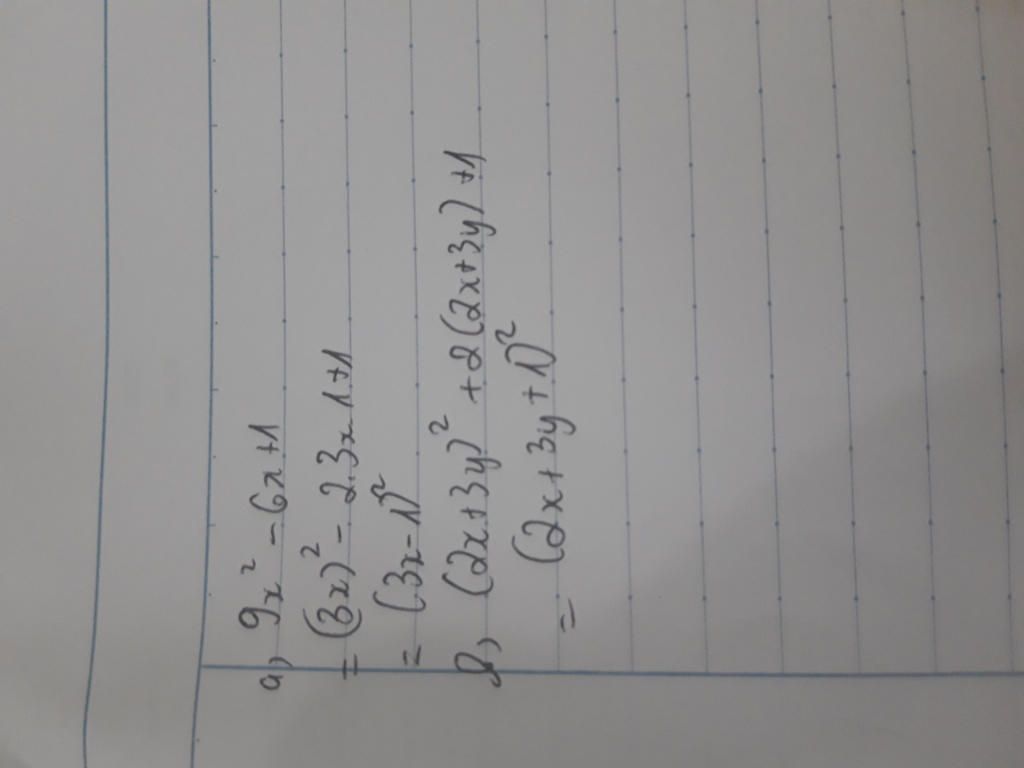 a, 9x² - 6x + 1
= (3x)² - 2.3x.1 + 1
= (3x - 1)²
b, (2x + 3y)² + 2(2x + 3y) + 1
= (2x + 3y + 1)²